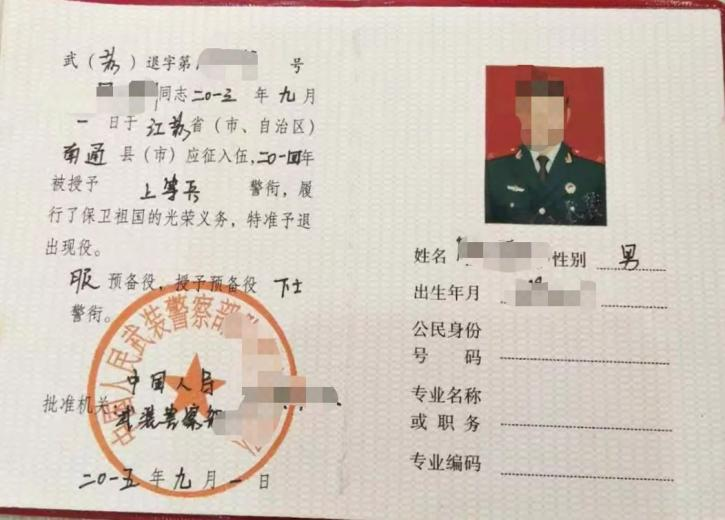 武（苏）退字第 号
同志二〇一三年九月
一日于江苏省（市、自治区）
南通县（市）应征入伍，二〇一四年
被授予 上等兵 警衔，履
行了保卫祖国的光荣义务，特准予退
出现役。
服预备役，授予预备役 下士
警衔。
中国人民武装警察部
批准机关：中国人民
武装警察部
二〇一五年九月一日
姓名 性别 男
出生年月
公民身份
号码
专业名称
或职务
专业编码